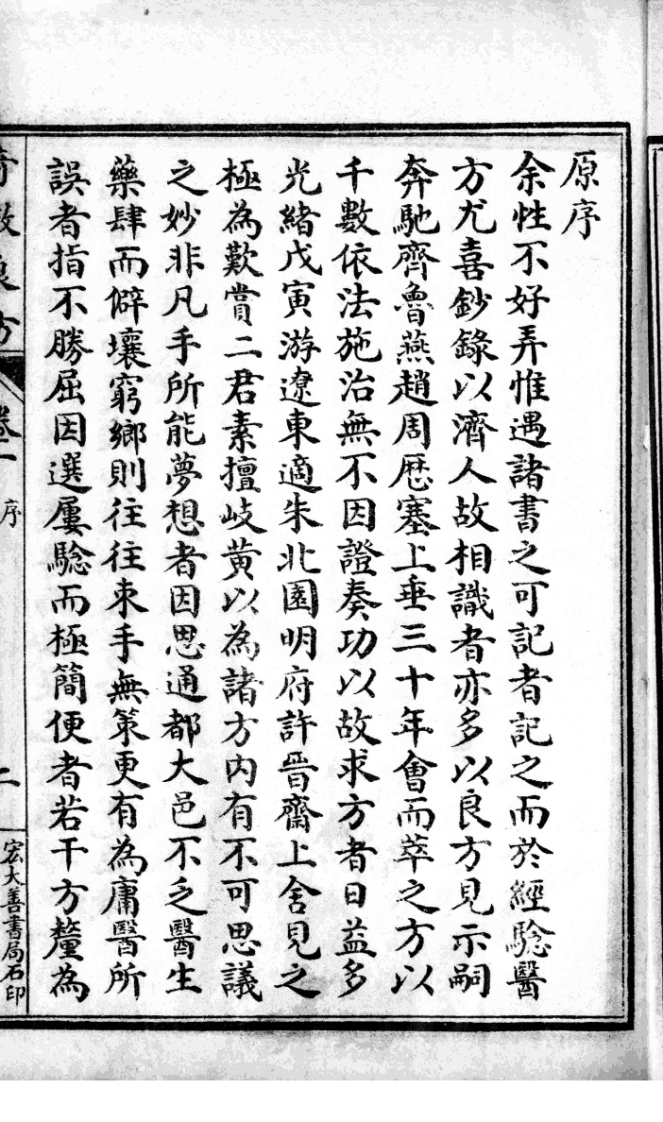 原序
余性不好弄惟遇諸書之可記者記之而於經驗醫
方尤喜鈔錄以濟人故相識者亦多以良方見示嗣
奔馳齊魯燕趙周歷塞上垂三十年會而萃之方以
千數依法施治無不因證奏功以故求方者日益多
光緒戊寅游遼東適朱北園明府許晉齋上舍見之
極為歎賞二君素擅岐黃以為諸方內有不可思議
之妙非凡手所能夢想者因思通都大邑不乏醫生
藥肆而僻壤窮鄉則往往束手無策更有為庸醫所
誤者指不勝屈因選屢驗而極簡便者若干方釐為
卷一
序
二
宏大善書局石印